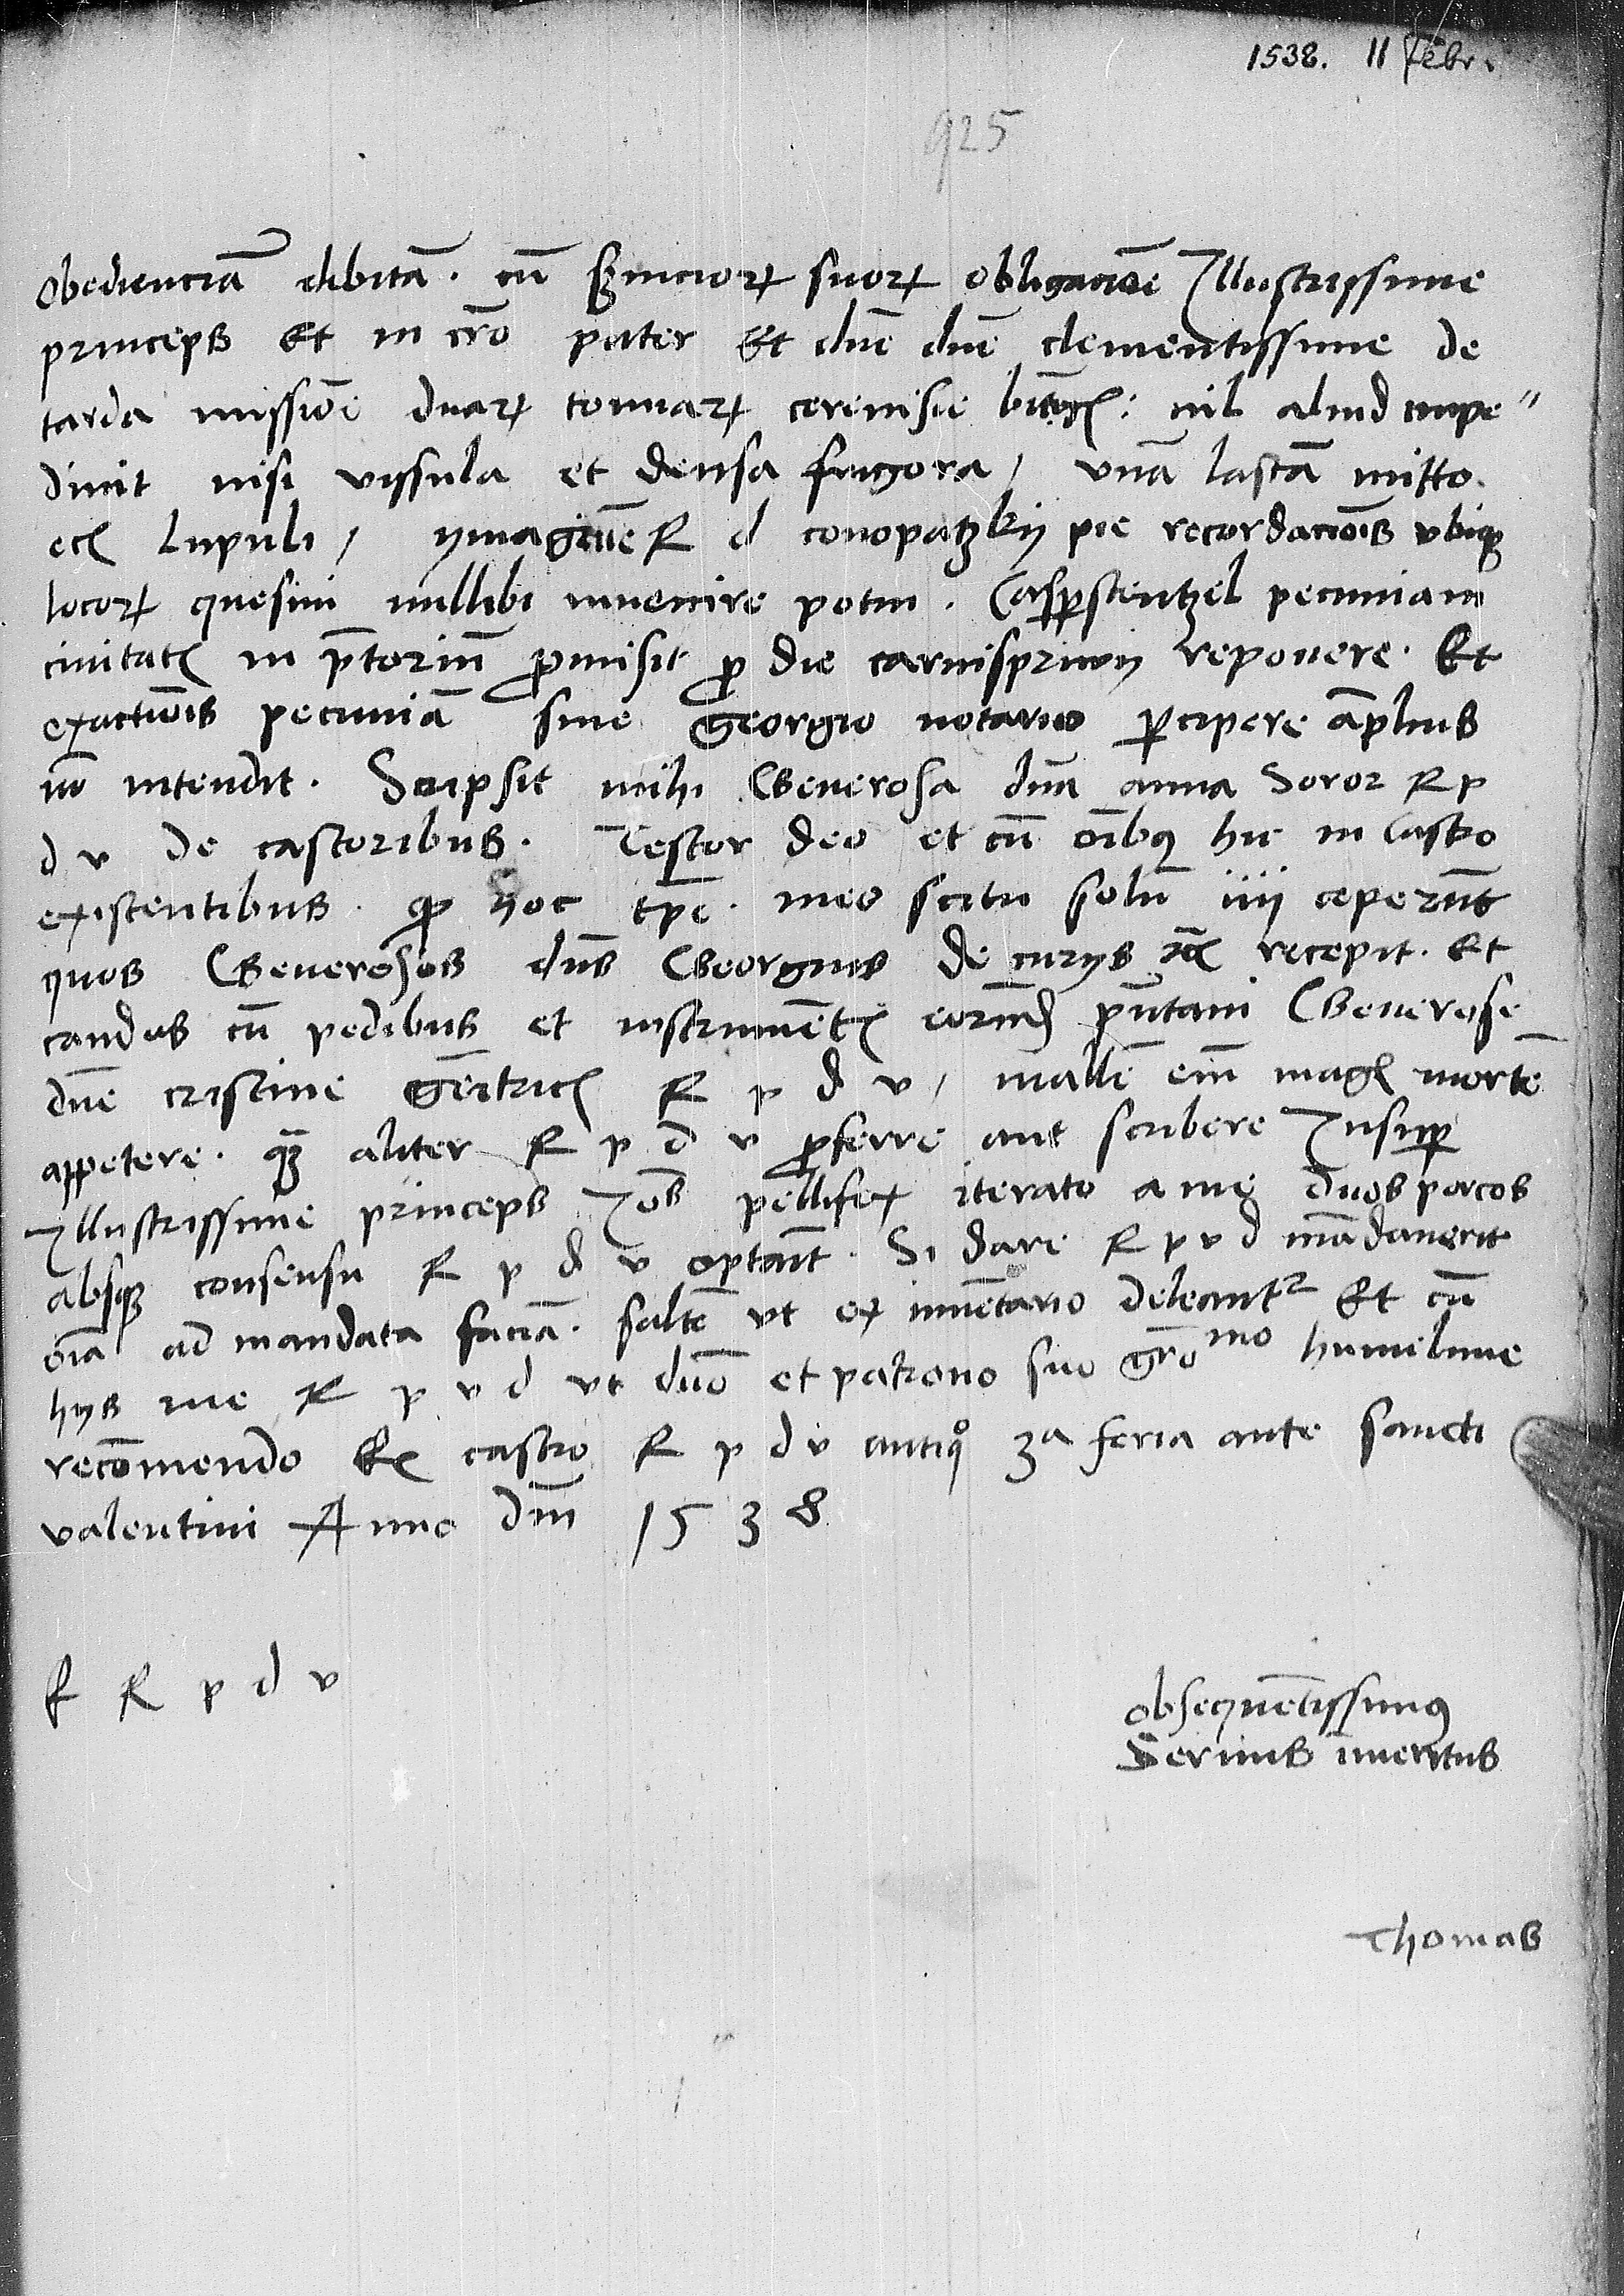 1538. 11 Febr.
925
Obedienciā debitā. cū s̄viciorꝝ suorꝝ obligacioē Illustrissime
princeps Et in cr̄o pater Et dn̄e dn̄e clementissime de
tarda missiōe duarꝝ tonnarꝝ cerevisie : nil aliud impe〃
divit nisi vissula et densa frigora / vnā lastā mitto
ecꝭ lupuli / ymaginē R d conopatzkij pie recordaciōis vbiqꝫ
locorꝝ quesivi nullibi invenire potui . Casꝑ stentzel pecuniam
civitatꝭ in p̄toriū ꝓmisit ꝓ die carnisprivij reponere. Et
exactiōis pecuniā sine Georgio notario ꝑcipere āplius
nō intendit. Scripsit mihi Generosa dn̄a anna Soror R p
d v de castoribus. Testor deo et cū oībꝫ hic in Castro
existentibus. qꝫ hoc tp̄e. meo scitu solū iiij ceperūt
quos Generosos dn̄s Georgius de curijs recepit. Et
caudas cū pedibus et instrumētꝭ eorūdꝭ pūtavi Generose
dn̄e cristine Genītricꝭ R p d v / mallē eīm magꝭ mortē
appetere. qꝫ aliter R p d v ꝓferre aut scribere Insuꝑ
Illustrissime princeps Joēs pellifex iterato a me duos porcos
absqꝫ consensu R p d v optavit. Si dare R p v d mādaverit
oīa ad mandata faciā. saltē vt ex inventario deleantʳ Et cū
hijs me R p v d vt dn̄o et patrono suo gr̄omo humilime
recōmendo Ex castro R p d v antiqͦ 3a feria ante sancti
valentini Anno dn̄i 1538
E R p d v
obsequētissimꝰ
Servus īmeritus
Thomas